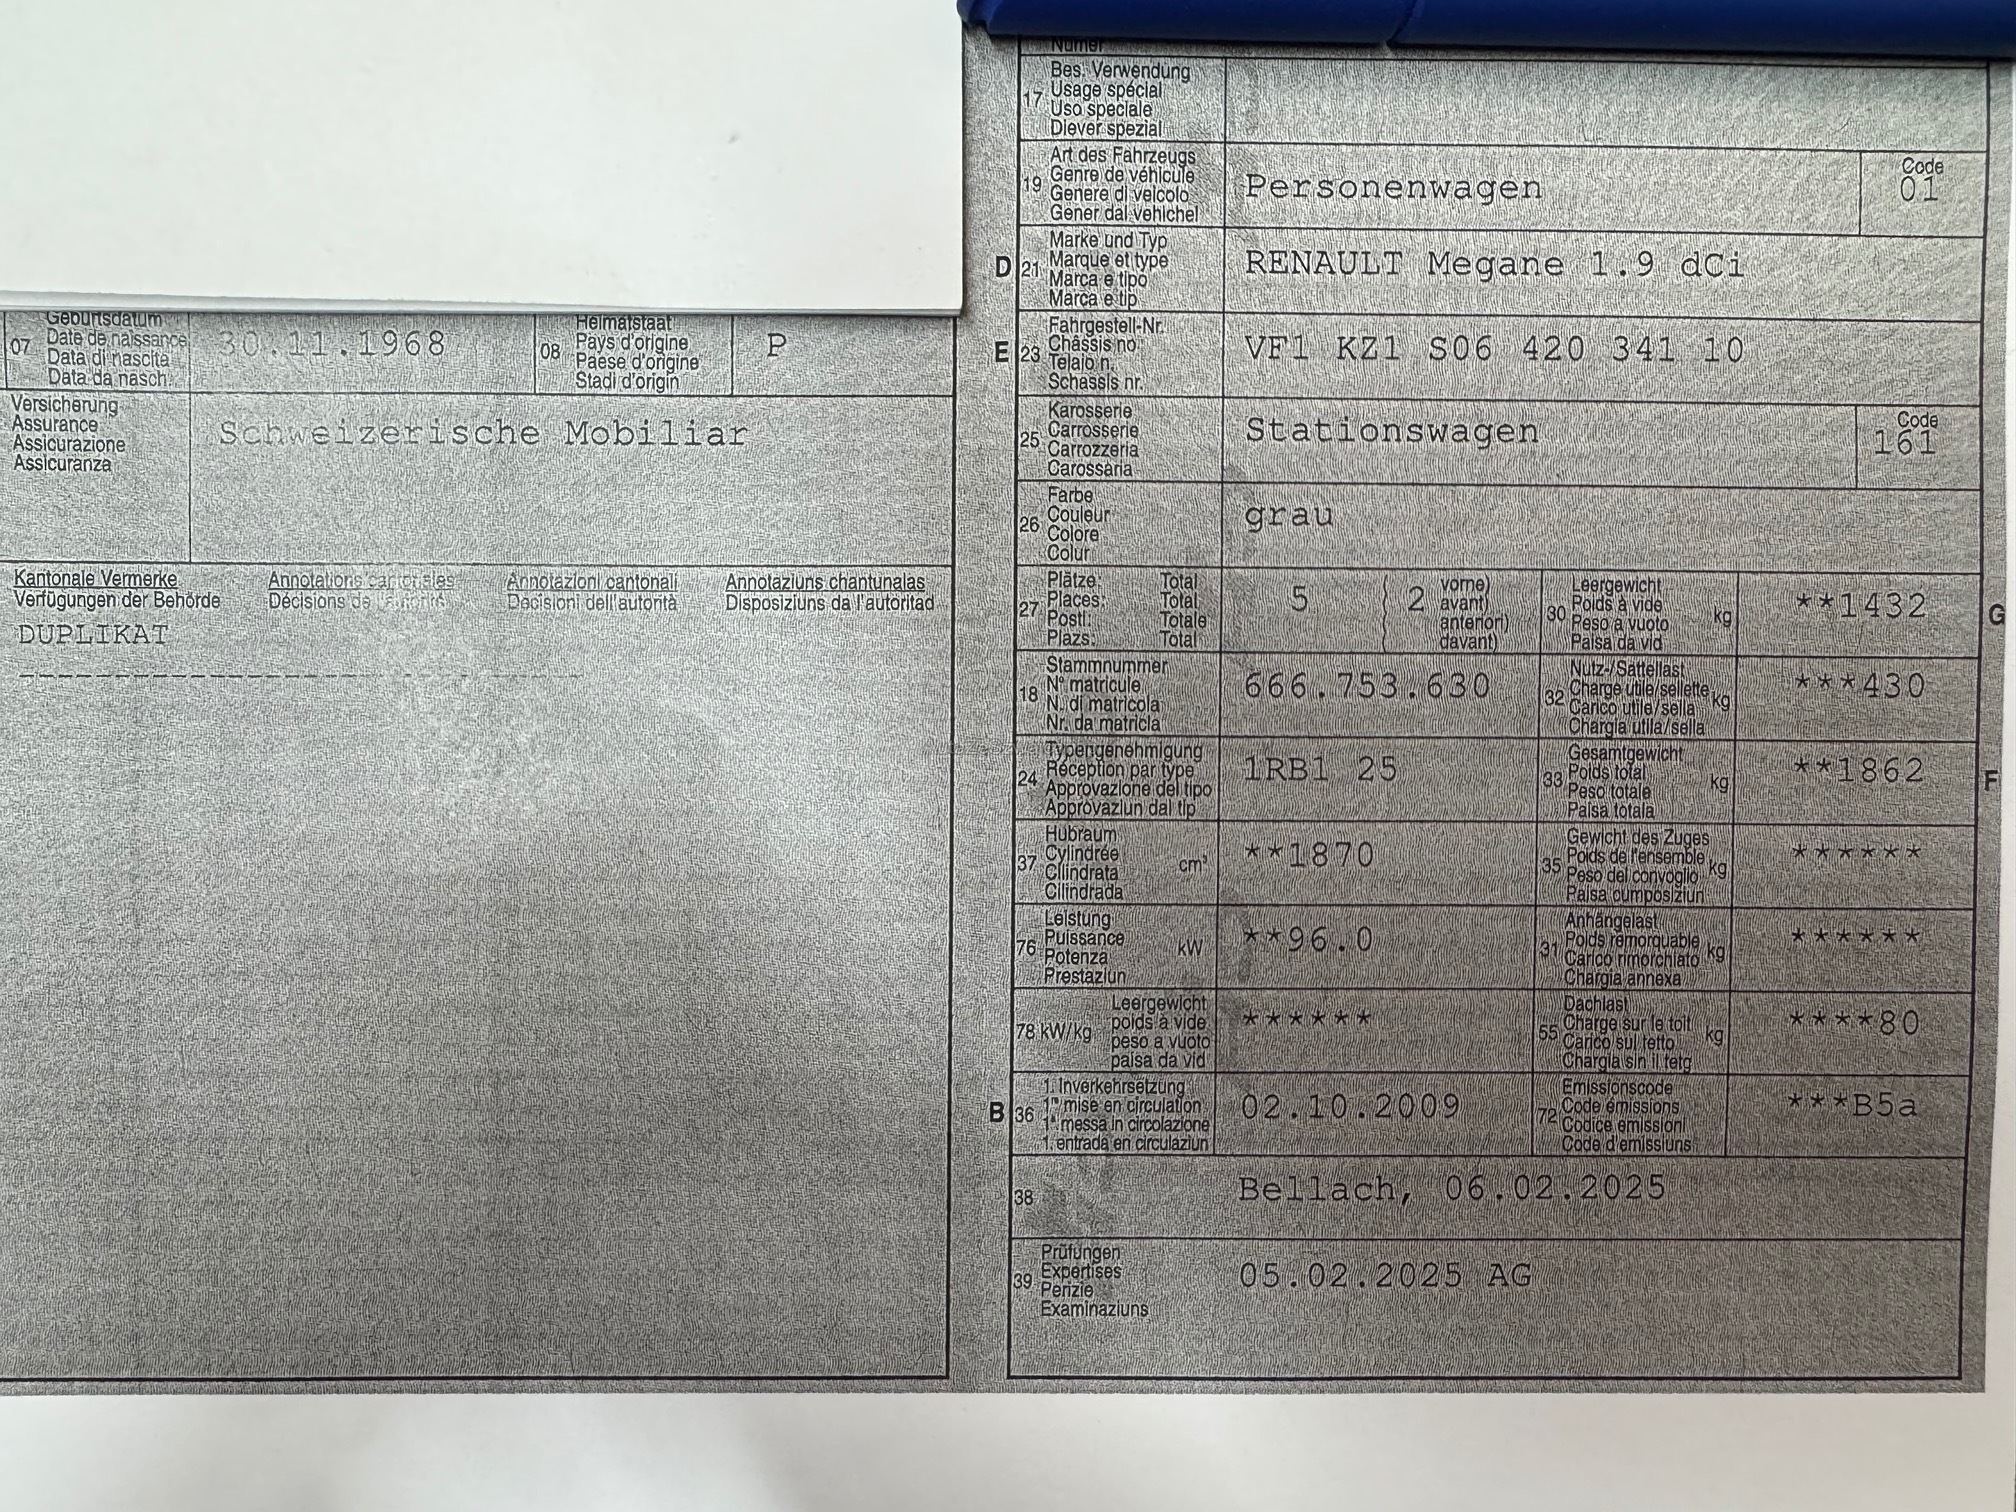 Geburtsdatum
07 Date de naissance 30.11.1968
Data di nascita
Data da nasch.
Heimatstaat
08 Pays d'origine P
Paese d'origine
Stadi d'origin
Versicherung
Assurance Schweizerische Mobiliar
Assicurazione
Assicuranza
Kantonale Vermerke Annotations cantonales Annotazioni cantonali Annotaziuns chantunalas
Verfügungen der Behörde Décisions de l'autorité Decisioni dell'autorità Disposiziuns da l'autoritad
DUPLIKAT
------------------------------------
Numer
Bes. Verwendung
17 Usage spécial
Uso speciale
Diever spezial
Art des Fahrzeugs Code
19 Genre de véhicule Personenwagen 01
Genere di veicolo
Gener dal vehichel
Marke und Typ
D 21 Marque et type RENAULT Megane 1.9 dCi
Marca e tipo
Marca e tip
Fahrgestell-Nr.
E 23 Châssis no VF1 KZ1 S06 420 341 10
Telaio n.
Schassis nr.
Karosserie Code
25 Carrosserie Stationswagen 161
Carrozzeria
Carossaria
Farbe
26 Couleur grau
Colore
Colur
Plätze: Total vorne)
27 Places: Total 5 ( 2 avant)
Posti: Totale anteriori)
Plazs: Total davant)
Leergewicht
30 Poids à vide kg **1432 G
Peso a vuoto
Paisa da vid
Stammnummer
18 N° matricule 666.753.630
N. di matricola
Nr. da matricla
Nutz-/Sattellast
32 Charge utile/sellette kg ***430
Carico utile/sella
Chargia utila/sella
Typengenehmigung
24 Réception par type 1RB1 25
Approvazione del tipo
Approvaziun dal tip
Gesamtgewicht
33 Poids total kg **1862 F
Peso totale
Paisa totala
Hubraum
37 Cylindrée cm³ **1870
Cilindrata
Cilindrada
Gewicht des Zuges
35 Poids de l'ensemble kg ******
Peso del convoglio
Paisa cumposiziun
Leistung
76 Puissance kW **96.0
Potenza
Prestaziun
Anhängelast
31 Poids remorquable kg ******
Carico rimorchiato
Chargia annexa
Leergewicht
78 kW/kg poids à vide ******
peso a vuoto
paisa da vid
Dachlast
55 Charge sur le toit kg ****80
Carico sul tetto
Chargia sin il tetg
1. Inverkehrsetzung
B 36 1re mise en circulation 02.10.2009
1a messa in circolazione
1. entrada en circulaziun
Emissionscode
72 Code émissions ***B5a
Codice emissioni
Code d'emissiuns
38 Bellach, 06.02.2025
Prüfungen
39 Expertises 05.02.2025 AG
Perizie
Examinaziuns